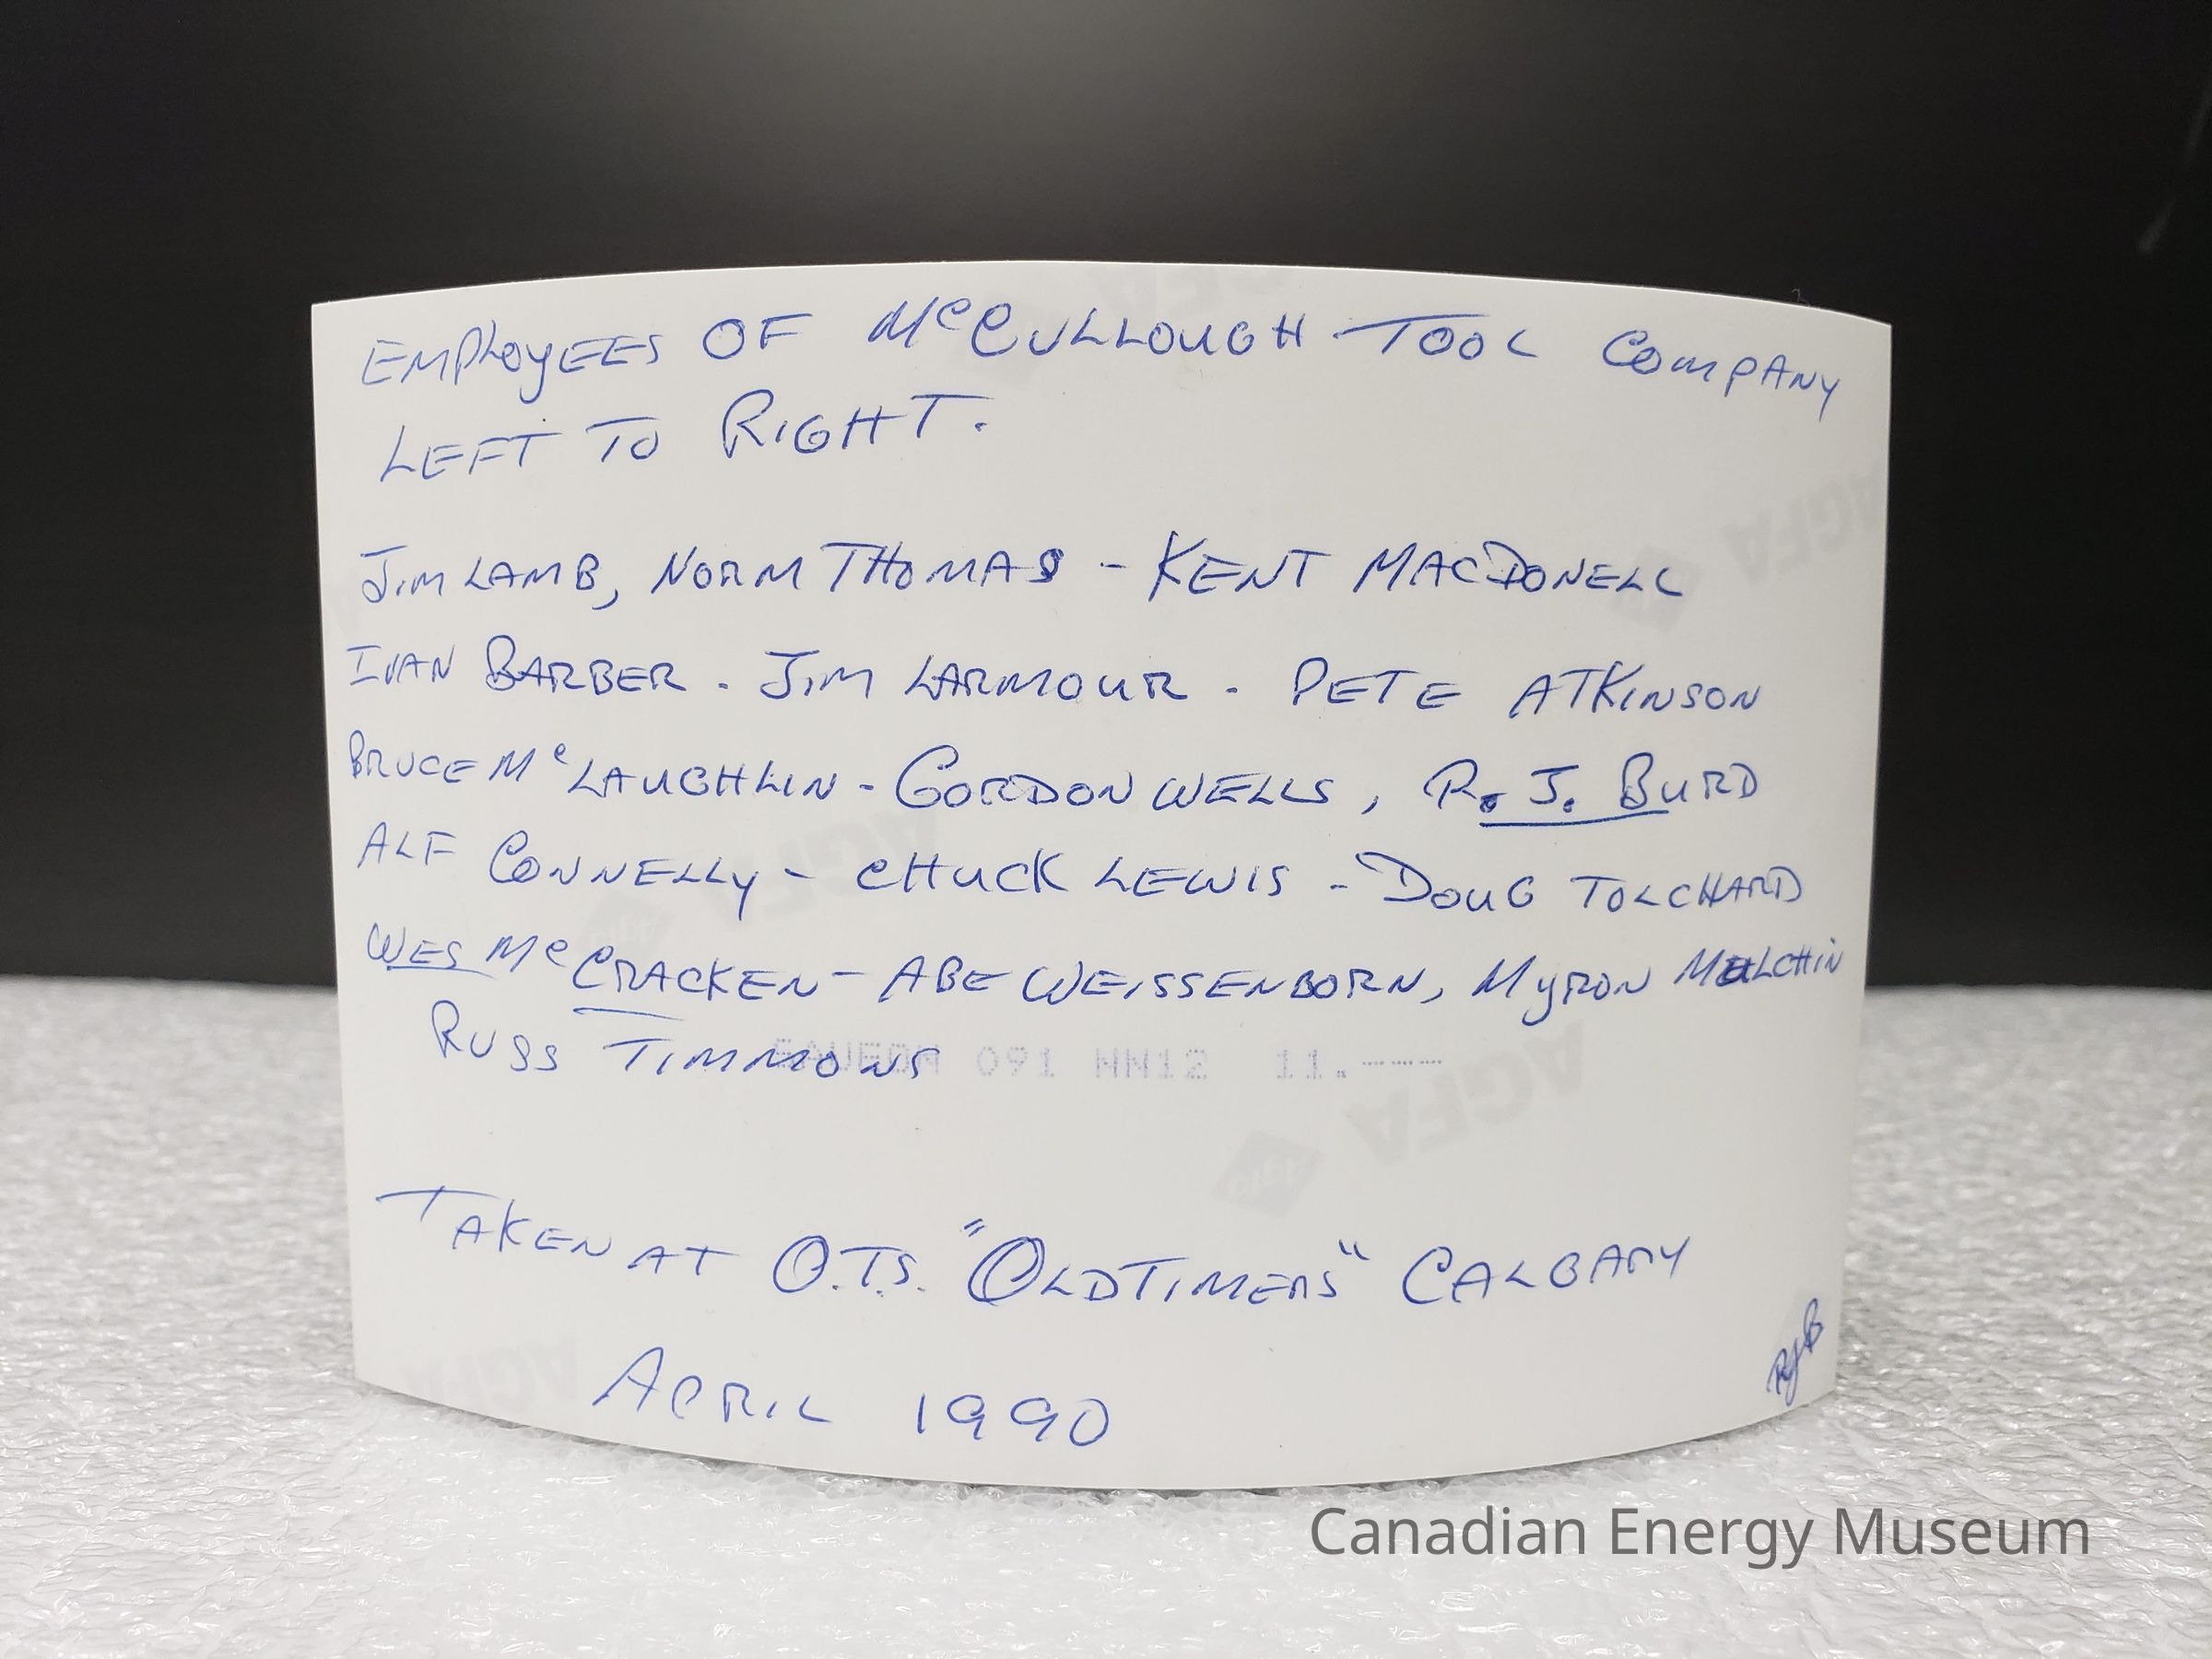 EMPLOYEES OF McCULLOUGH TOOL COMPANY
LEFT TO RIGHT.
JIM LAMB, NORM THOMAS - KENT MACDONELL
IVAN BARBER - JIM LARMOUR - PETE ATKINSON
BRUCE McLAUGHLIN - GORDON WELLS, R. J. BURD
ALF CONNELLY - CHUCK LEWIS - DOUG TOLCHARD
WES McCRACKEN - ABE WEISSENBORN, MYRON MALCHIN
RUSS TIMMONS
091 NN12 11.----
TAKEN AT O.T.S. "OLDTIMERS" CALGARY
RJB
APRIL 1990
AGFA
AGFA
AGFA
AGFA
AGFA
Canadian Energy Museum